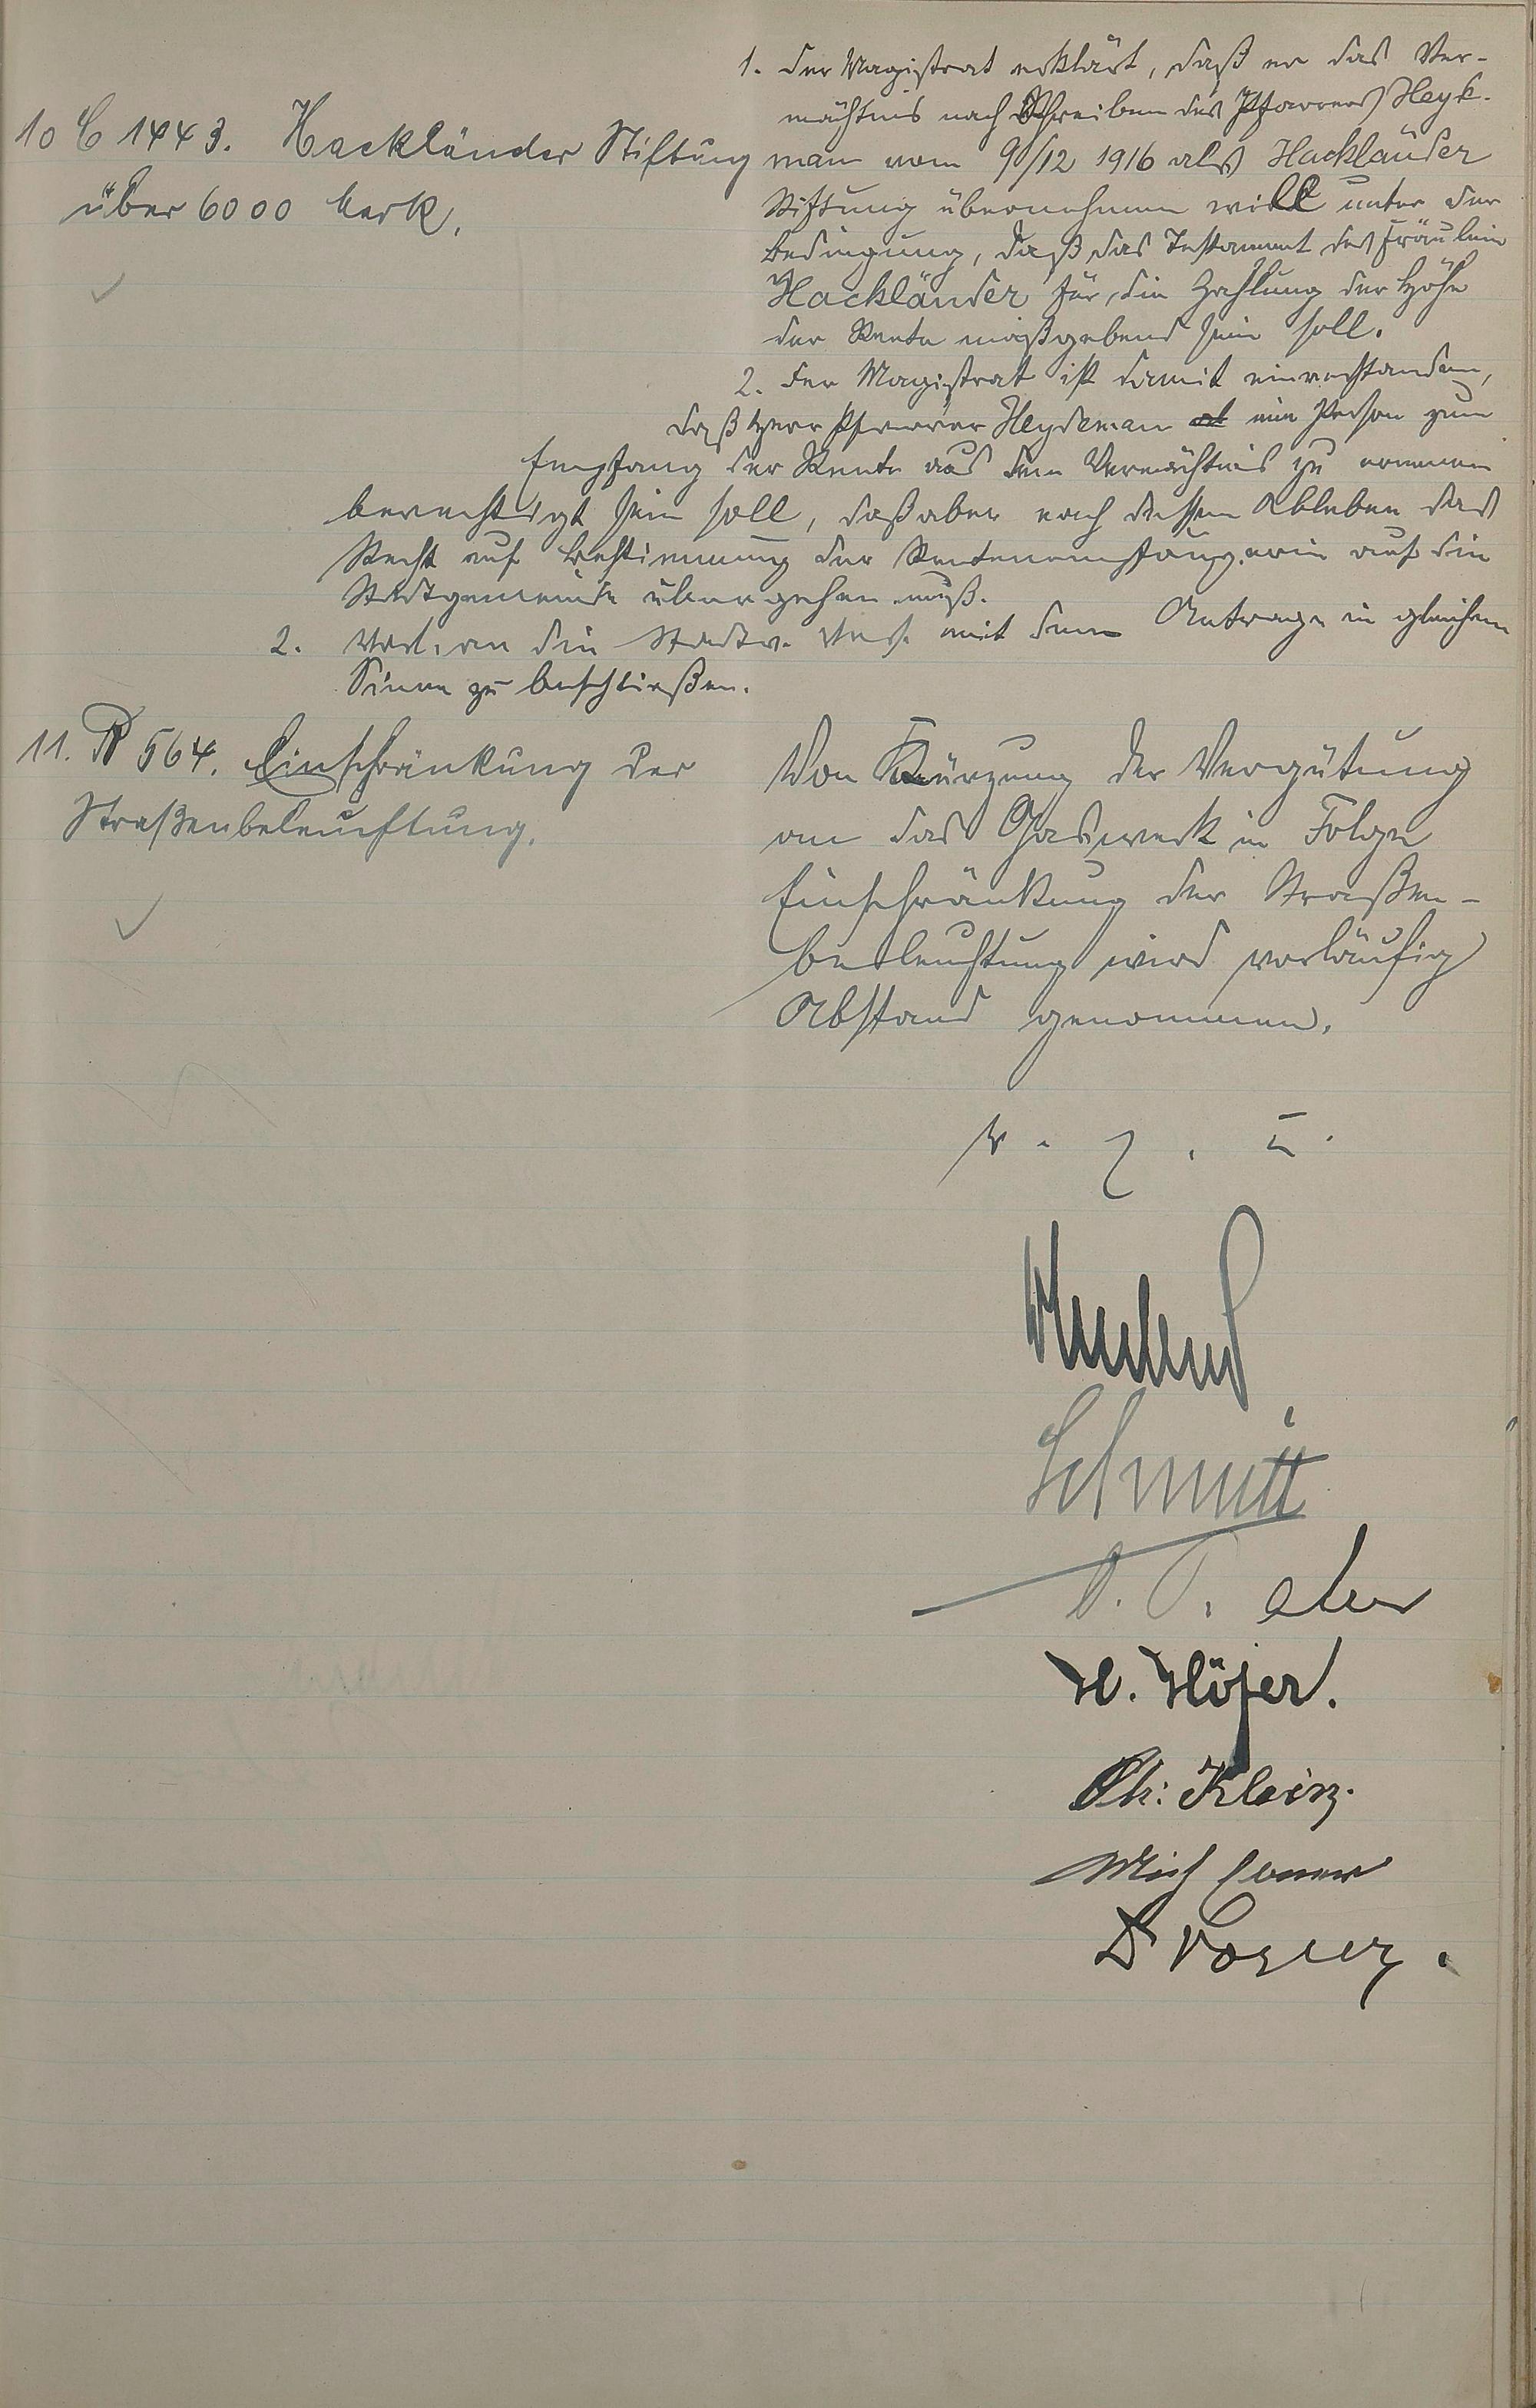 10 C 1443. Hackländer Stiftung
über 6000 Mark.
1. Der Magistrat erklärt, daß er das Ver-
mächtnis nach Schreiben des Pfarrers Heyde-
man vom 9/12 1916 als Hackländer
Stiftung übernehmen will unter der
Bedingung, daß das Testament des Fräulein
Hackländer für die Zahlung der Höhe
der Rente maßgebend sein soll.
2. Der Magistrat ist damit einverstanden,
daß Herr Pfarrer Heydeman eine Person zum
Empfang der Rente aus dem Vermächtnis zu ernennen
berechtigt sein soll, daß aber nach dessen Ableben das
Recht auf Bestimmung der Rentenempfängerin auf die
Stadtgemeinde übergehen muß.
2. Vorl. an die Stadtv. Vers. mit dem Antrage in gleichem
Sinne zu beschließen.
11. R 564. Einschränkung der
Straßenbeleuchtung.
Von Kürzung der Vergütung
an das Gaswerk in Folge
Einschränkung der Straßen-
beleuchtung wird vorläufig
Abstand genommen.
v. g. u.
Schmitt
H. Höfer.
Ch: Klein